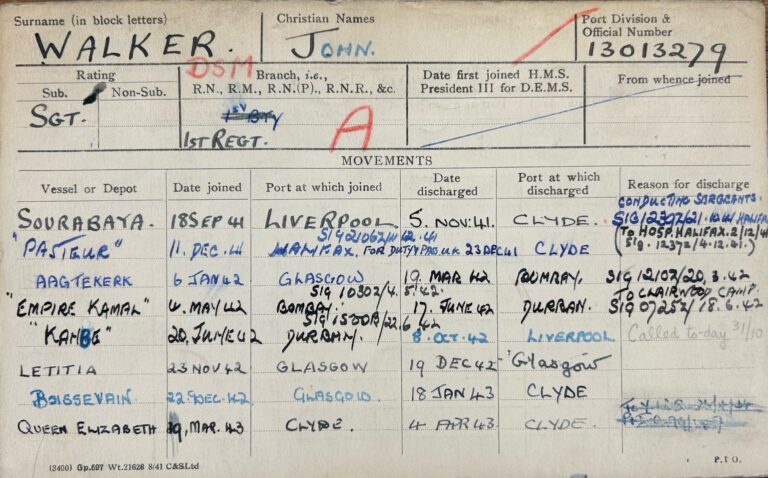 Surname (in block letters) Christian Names Port Division & Official Number
WALKER. JOHN. 13013279
Rating DSM Branch, i.e., Date first joined H.M.S. From whence joined
Sub. Non-Sub. R.N., R.M., R.N.(P)., R.N.R., &c. President III for D.E.M.S.
SGT. 1ST BTY A
1ST REGT.
MOVEMENTS
Vessel or Depot Date joined Port at which joined Date discharged Port at which discharged Reason for discharge
CONDUCTING SERGEANTS.
SOURABAYA. 18 SEP 41 LIVERPOOL 5. NOV. 41. CLYDE. HALIFAX
(TO HOSP. HALIFAX. 2/12/41
SIG. 12372/4.12.41.)
"PASTEUR" 11. DEC. 41 HALIFAX. FOR DUTY 23 DEC 41 CLYDE
AAGTEKERK 6 JAN 42 GLASGOW 19 MAR 42 BOMBAY. SIG 12107/20.3.42
SIG 10302/4.5.42. TO CLAIRWOOD CAMP.
"EMPIRE KAMAL" 4. MAY 42 BOMBAY. 17. JUNE 42 DURBAN. SIG 0725z/18.6.42
"KAMBE" 20. JUNE 42 DURBAN. 8. OCT. 42 LIVERPOOL Called to-day 31/10
LETITIA 23 NOV 42 GLASGOW 19 DEC 42 Glasgow
BOISSEVAIN 22 DEC. 42 GLASGOW. 18 JAN 43 CLYDE
QUEEN ELIZABETH 29, MAR. 43 CLYDE. 4 APR 43 CLYDE.
(3400) Gp.697 Wt.21628 8/41 C&SLtd P.T.O.